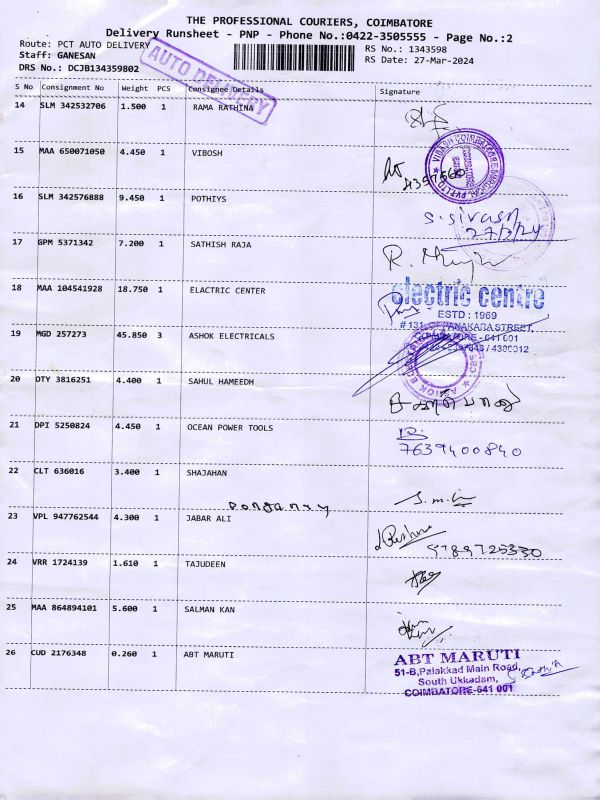 THE PROFESSIONAL COURIERS, COIMBATORE
Delivery Runsheet - PNP - Phone No.:0422-3505555 - Page No.:2
Route: PCT AUTO DELIVERY RS No.: 1343598
Staff: GANESAN RS Date: 27-Mar-2024
DRS No.: DCJB134359802
AUTO DELIVERY
S No Consignment No Weight PCS Consignee Details Signature
14 SLM 342532706 1.500 1 RAMA RATHINA
15 MAA 650071050 4.450 1 VIBOSH
16 SLM 342576888 9.450 1 POTHIYS
S. Sivasn
27/3/24
17 GPM 5371342 7.200 1 SATHISH RAJA
18 MAA 104541928 18.750 1 ELACTRIC CENTER
electric centre
ESTD : 1969
COIMBATORE - 641 001
19 MGD 257273 45.850 3 ASHOK ELECTRICALS
20 OTY 3816251 4.400 1 SAHUL HAMEEDH
21 DPI 5250824 4.450 1 OCEAN POWER TOOLS
7639400840
22 CLT 636016 3.400 1 SHAJAHAN
23 VPL 947762544 4.300 1 JABAR ALI
9789725330
24 VRR 1724139 1.610 1 TAJUDEEN
25 MAA 864894101 5.600 1 SALMAN KAN
26 CUD 2176348 0.260 1 ABT MARUTI
ABT MARUTI
51-B,Palakkad Main Road,
South Ukkadam,
COIMBATORE-641 001